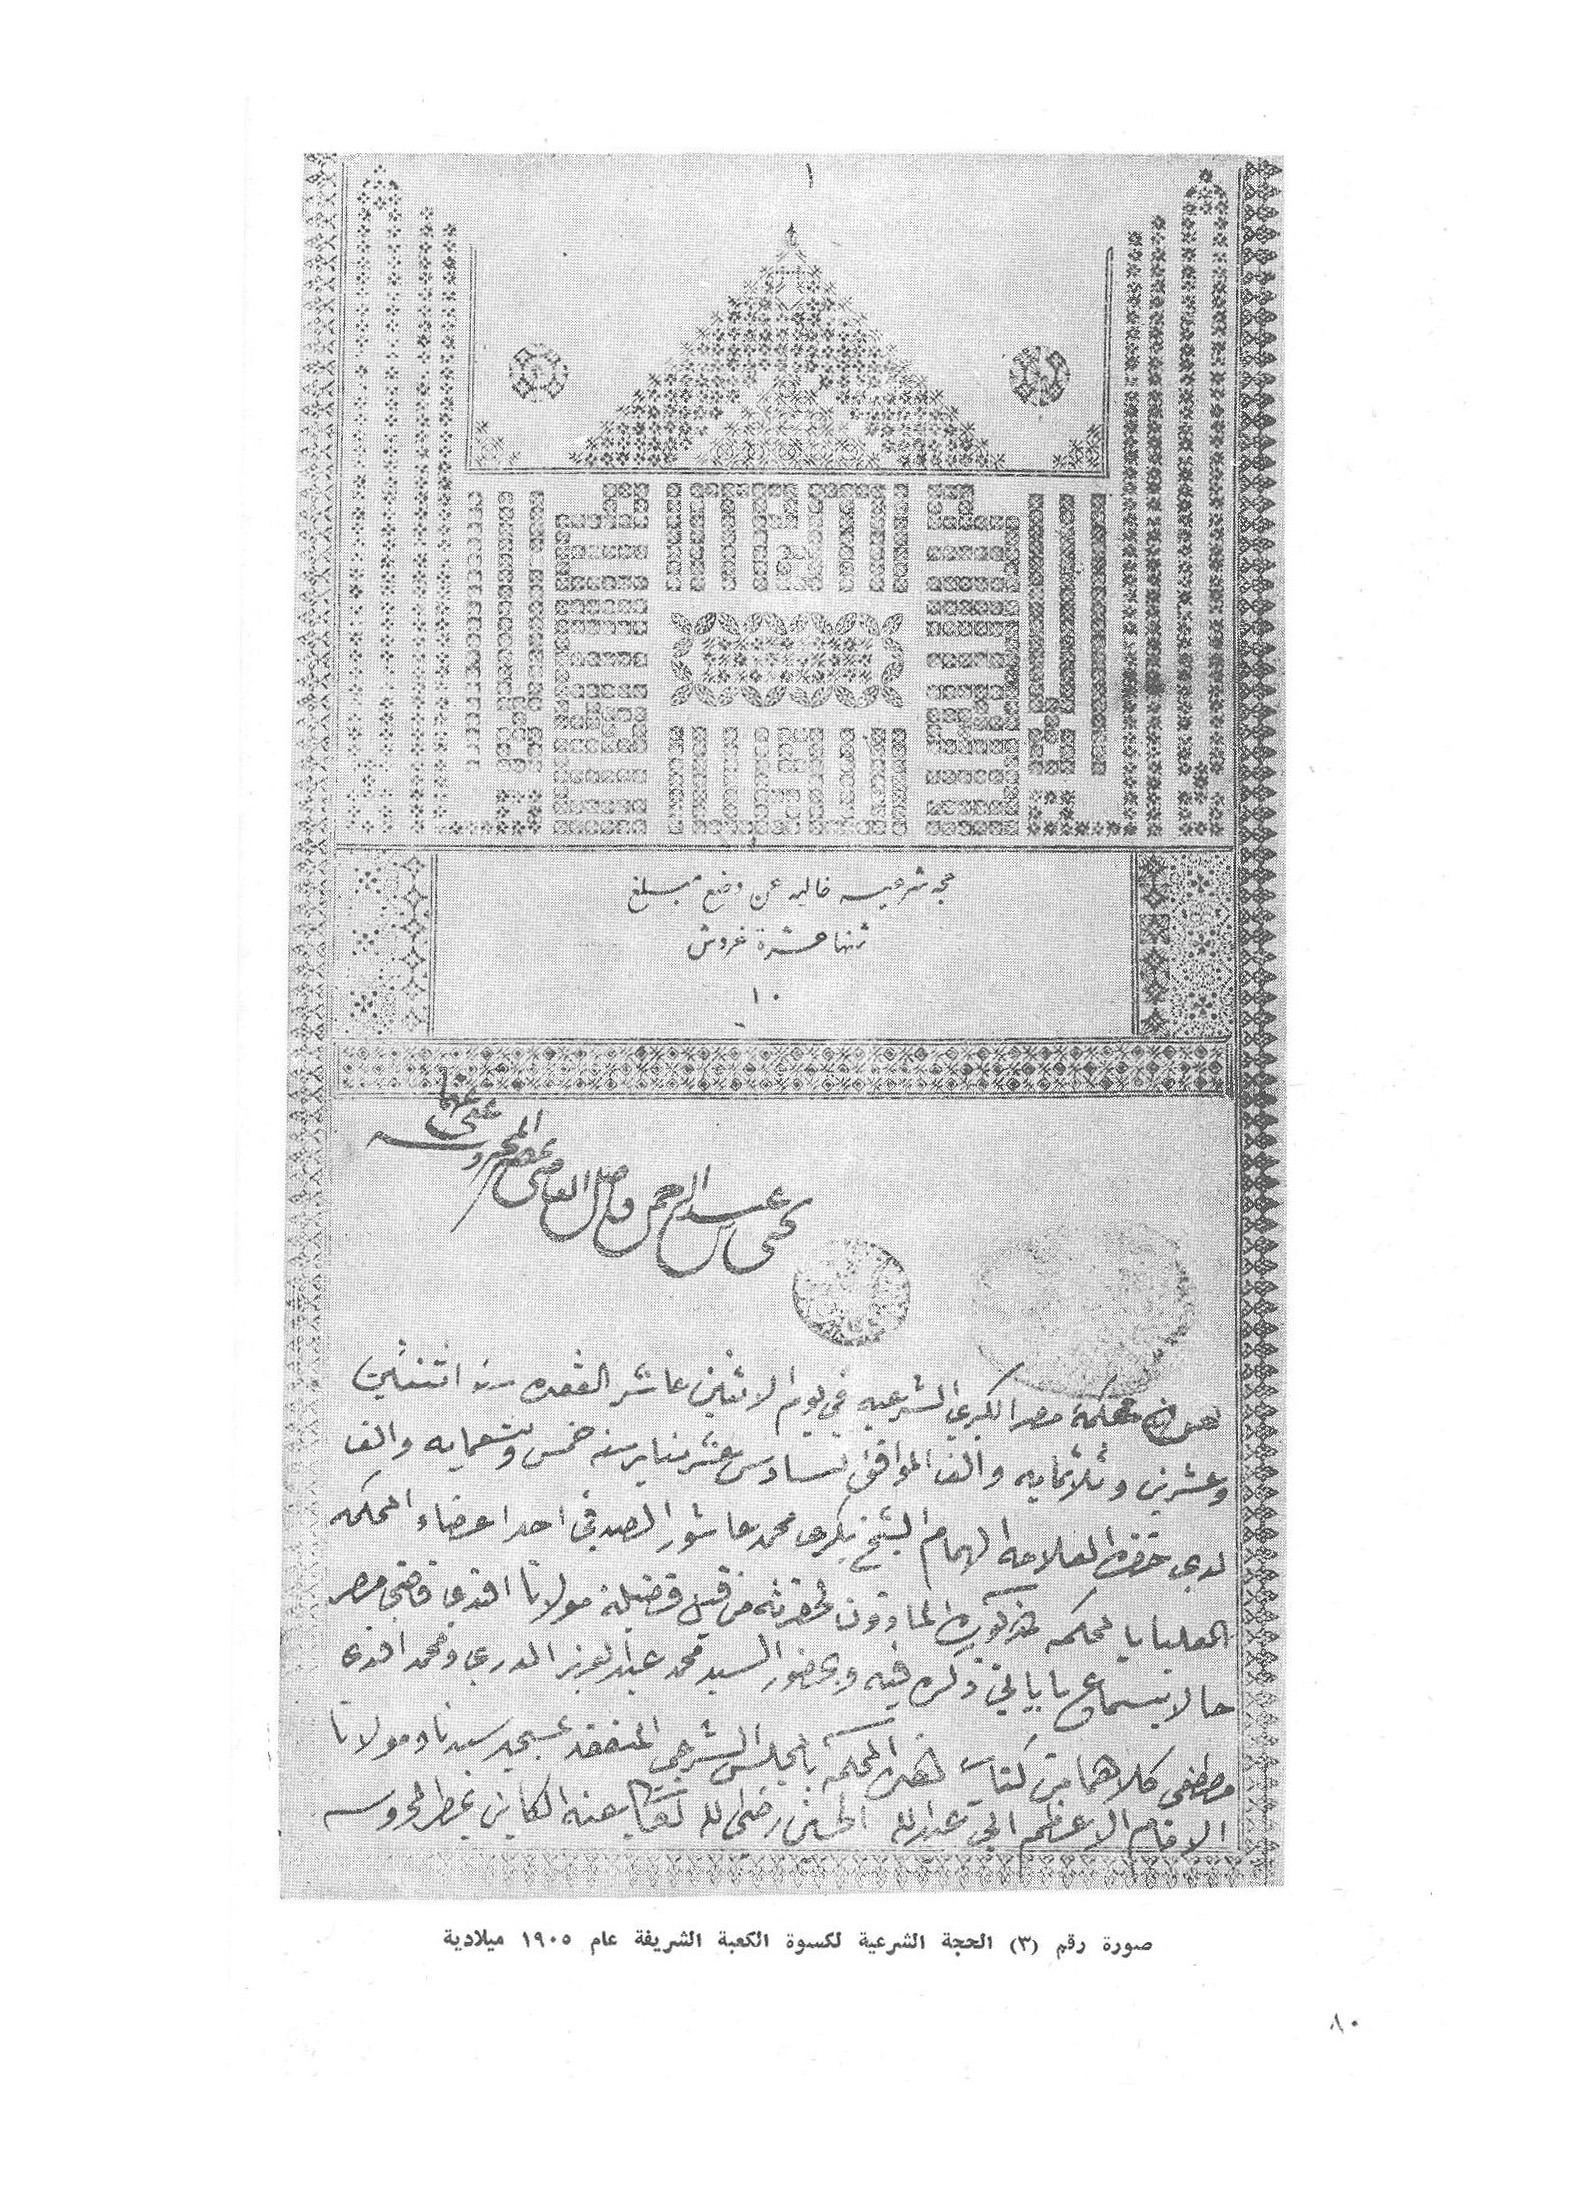 ١
حجه شرعيه خاليه عن وضع مبلغ
ثمنها عشرة غروش
١٠
يحيى بن عبد الرحمن فاضل القاضى بمصر المحروسه عفى عنهما
بمحكمة مصر الكبرى الشرعيه في يوم الاثنين عاشر القعده سنة اثنتين
وعشرين وثلاثمايه والف الموافق لسادس عشر يناير سنة خمس وتسعمايه والف
لدى حضرة العلامه الهمام الشيخ بكرى محمد عاشور الصدفي احد اعضاء المحكمه
العليا بالمحكمه المذكوره الماذون لحضرته من قبل فضيلة مولانا افندى قاضى مصر
حالا بسماع ما ياتي ذكره فيه وبحضور السيد محمد عبد العزيز الدرى ومحمد افندى
مصطفى كلاهما من كتاب هذه المحكمة بالمجلس الشرعى المنعقد بمسجد سيدنا ومولانا
الامام الاعظم ابي عبد الله الحسين رضى الله تعالى عنه الكاين بخط المحروسه
صورة رقم (٣) الحجة الشرعية لكسوة الكعبة الشريفة عام ١٩٠٥ ميلادية
٨٠